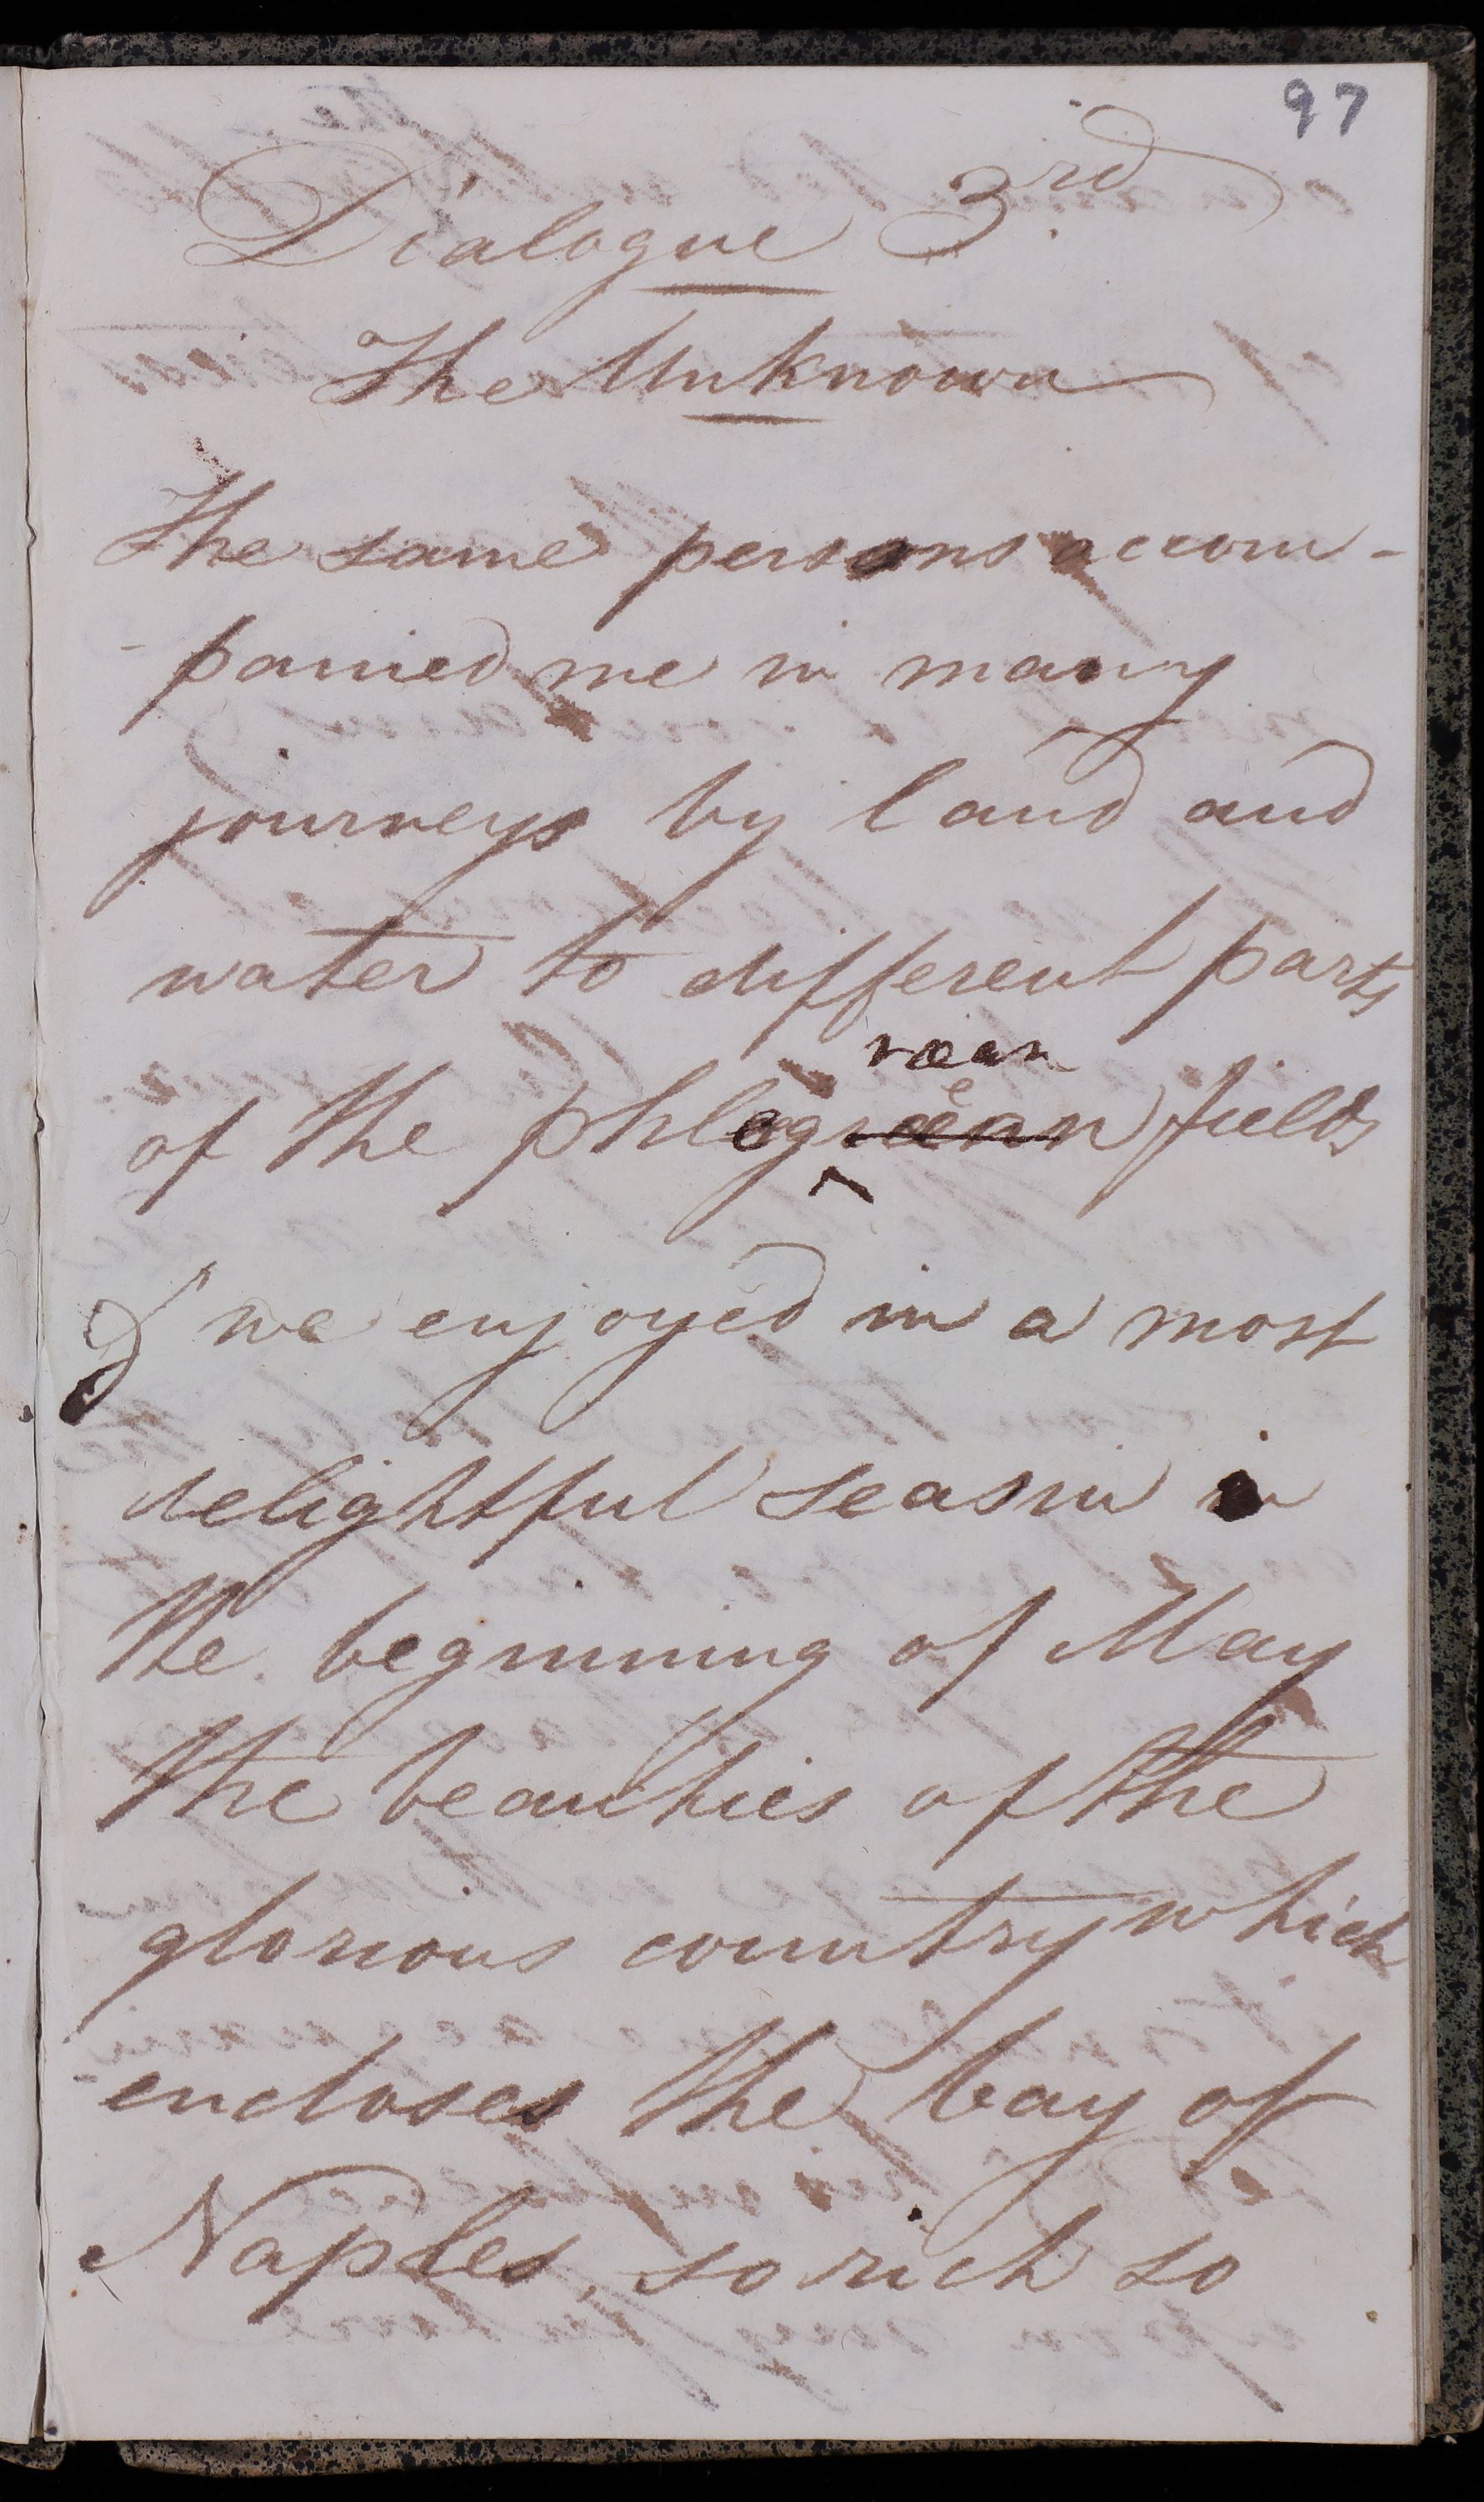 97
Dialogue 3rd.
The Unknown
The same persons accom-
-panied me in many
journeys by land and
water to different parts
ræan
of the phlegræan fields
& we enjoyed in a most
delightful season in
the beginning of May
the beauties of the
glorious country which
encloses the bay of
Naples, so rich so